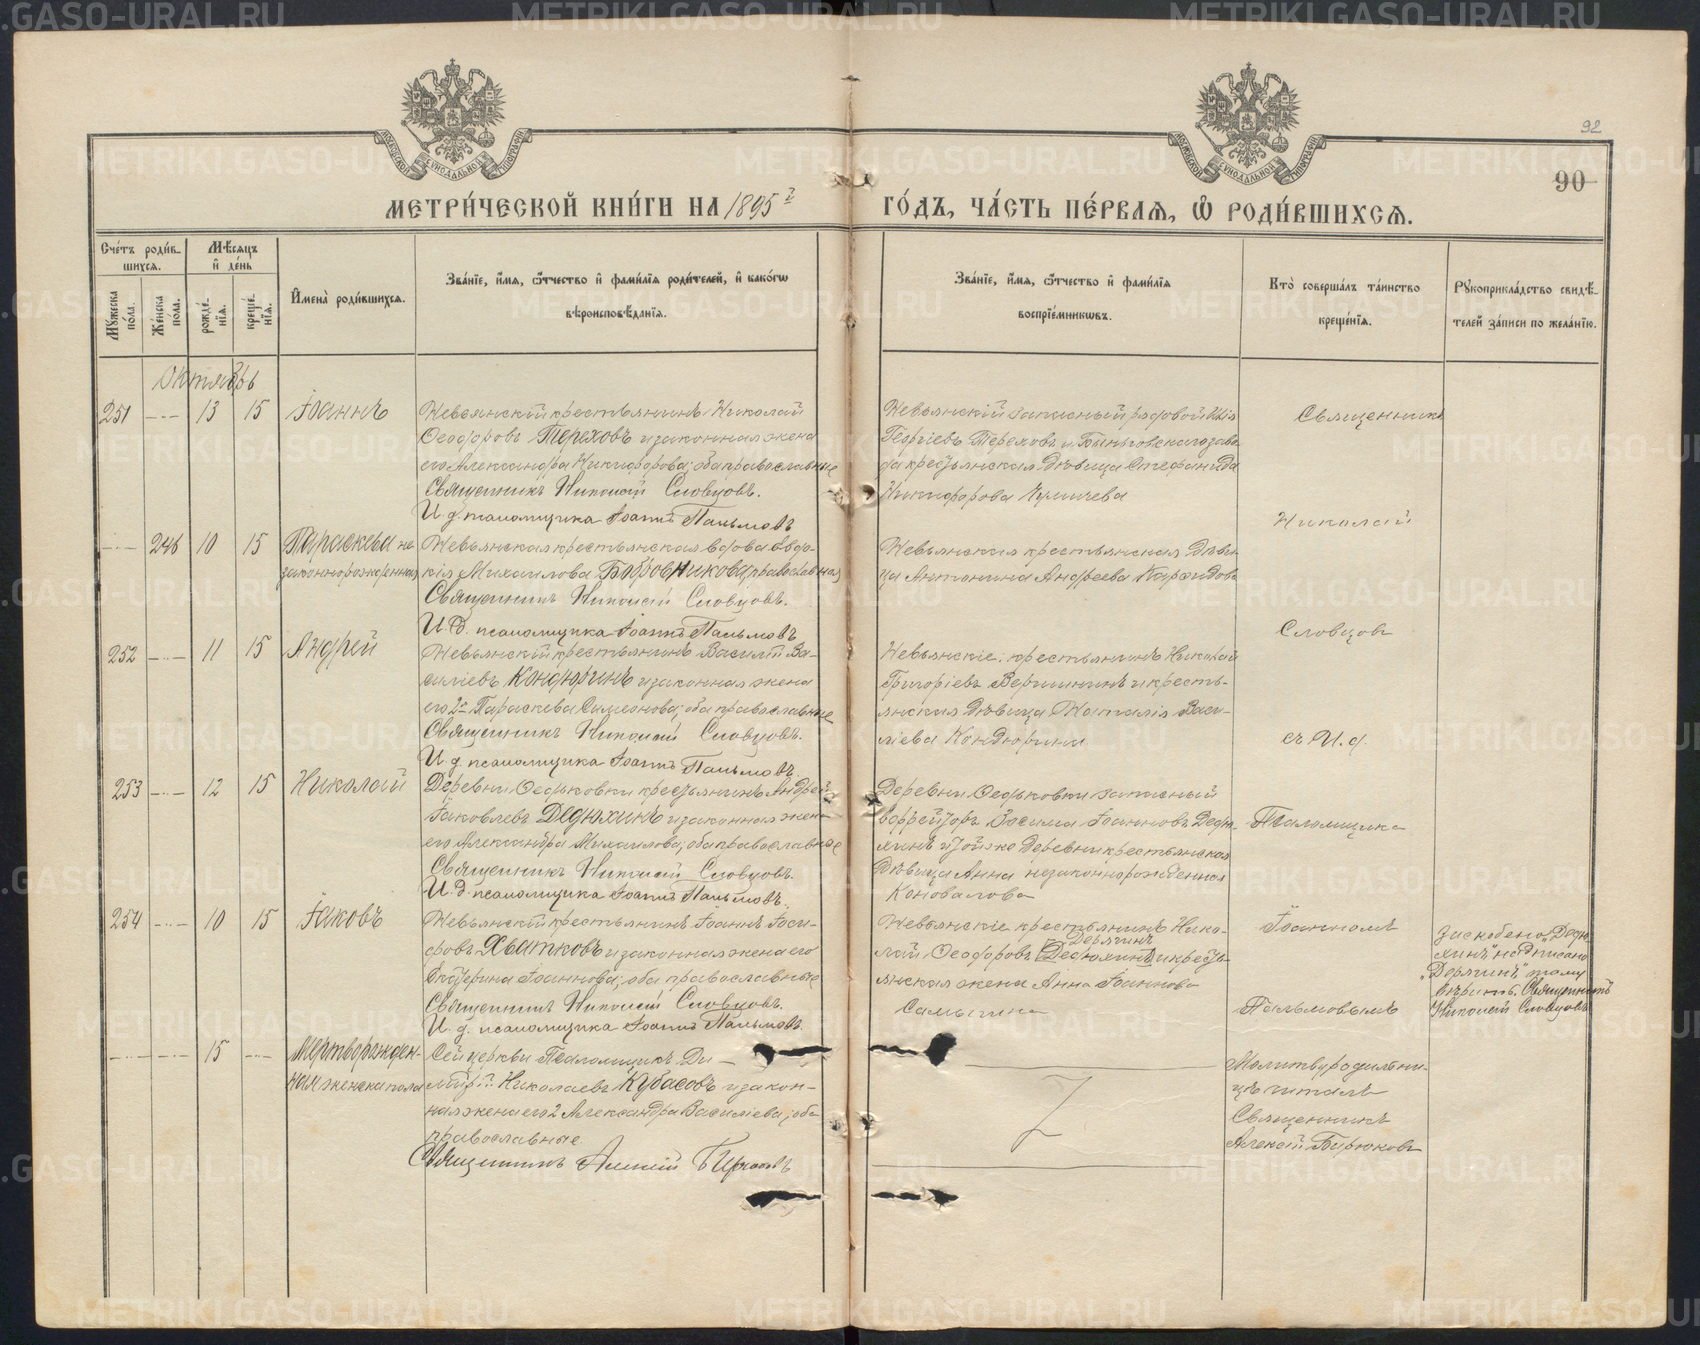 METRIKI.GASO-URAL.RU
92
90
МЕТРИ́ЧЕСКОЙ КНИ́ГИ НА 1895 г.
ГО́ДЪ, ЧА́СТЬ ПЕ́РВАѦ, Ѡ РОДИ́ВШИХСѦ.
Сче́тъ роди́в-
шихсѧ.
Мѣ́сѧцъ
и҆ де́нь
Мꙋ́жеска по́ла.
Же́нска по́ла.
рожде́-нїѧ.
креще́-нїѧ.
И҆мена̀ роди́вшихсѧ.
Зва́нїе, и҆́мѧ, ѻ҆́тчество и҆ фами́лїѧ роди́телей, и҆ како́гѡ
вѣроисповѣ́данїѧ.
Зва́нїе, и҆́мѧ, ѻ҆́тчество и҆ фами́лїѧ
воспрїе́мникѡвъ.
Кто̀ соверша́лъ та́инство
креще́нїѧ.
Рꙋкоприкла́дство свидѣ́-
телей за́писи по жела́нїю.
Октябрь
251 13 15 Іоаннъ
Невьянскій крестьянинъ Николай
Ѳеодоровъ Тереховъ и законная жена
его Александра Никифорова; оба православные
Священникъ Николай Словцовъ.
И. д. псаломщика Іоаннъ Пальмовъ
Невьянскій запасный рядовой Илія
Георгіевъ Тереховъ и Быньговскаго заво-
да крестьянская дѣвица Стефанида
Никифорова
Священникъ
Николай
246 10 15 Параскева не-
законнорожденная
Невьянская крестьянская вдова Евдо-
кія Михаилова Бобровникова, православная
Священникъ Николай Словцовъ.
И. д. псаломщика Іоаннъ Пальмовъ
Невьянская крестьянская дѣви-
ца Антонина Андреева
Словцовъ
252 11 15 Андрей
Невьянскій крестьянинъ Василій Ва-
силіевъ Кондюринъ и законная жена
его 2я Параскева Симеонова; оба православные
Священникъ Николай Словцовъ.
И. д. псаломщика Іоаннъ Пальмовъ
Невьянскіе: крестьянинъ Николай
Григоріевъ Вершининъ и кресть-
янская дѣвица Наталія Васи-
ліева Кондюрина
съ И. д.
253 12 15 Николай
Деревни Ѳедьковки крестьянинъ Андрей
Іаковлевъ Дедюхинъ и законная жена
его Александра Михаилова; оба православные
Священникъ Николай Словцовъ.
И. д. псаломщика Іоаннъ Пальмовъ.
Деревни Ѳедьковки запасный
ефрейторъ Іоанновъ Дедю-
хинъ и той же деревни крестьянская
дѣвица Анна незаконнорожденная
Коновалова
Псаломщика
254 10 15 Іаковъ
Невьянскій крестьянинъ Іоаннъ Іоси-
фовъ Хватковъ и законная жена его
Екатерина Іоаннова; оба православные
Священникъ Николай Словцовъ.
И. д. псаломщика Іоаннъ Пальмовъ.
Невьянскіе крестьянинъ Нико-
Дерягинъ
лай Ѳеодоровъ [Дедюхинъ] и кресть-
янская жена Анна Іоаннова
Іоанномъ
Пальмовымъ
Заскоблено „Дедю-
хинъ“ надписано
„Дерягинъ“, тому
вѣрить. Священникъ
Николай Словцовъ
15 Мертворожден-
ная женска пола
Сей церкви Псаломщикъ Ди-
митрій Николаевъ Кубасовъ и закон-
ная жена его 2 Александра Василіева; оба
православные
Священникъ Алексій Бирюковъ
Молитву родильни-
цѣ читалъ
Священникъ
Алексій Бирюковъ